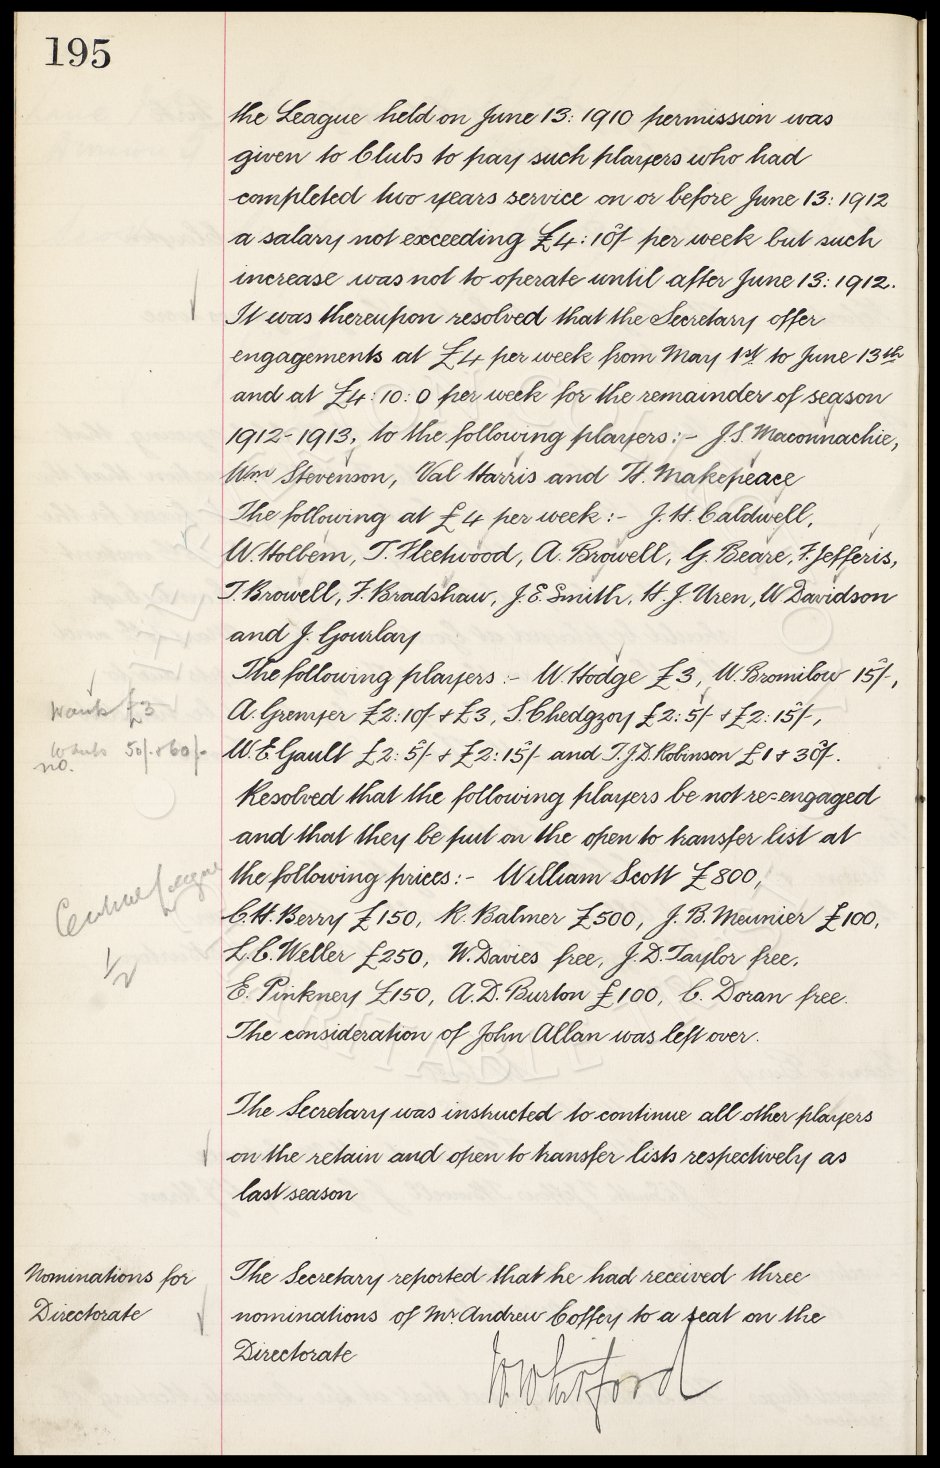 195
the League held on June 13: 1910 permission was
given to Clubs to pay such players who had
completed two years service on or before June 13: 1912
a salary not exceeding £4: 10/- per week but such
increase was not to operate until after June 13: 1912.
It was thereupon resolved that the Secretary offer
engagements at £4 per week from May 1st to June 13th
and at £4: 10: 0 per week for the remainder of season
1912-1913, to the following players:- J.S. Maconnachie,
Wm Stevenson, Val Harris and H. Makepeace
The following at £4 per week:- J.H. Caldwell,
W. Holbem, T. Fleetwood, A. Browell, G. Beare, F. Jefferis,
T. Browell, F. Bradshaw, J.E. Smith, H.J. Uren, W Davidson
and J. Gourlay
The following players:- W. Hodge £3, W. Bromilow 15/-,
wants £3
A. Grenyer £2:10/- & £3, S. Chedgzoy £2:5/- & £2:15/-,
wants 50/- & 60/-
no.
W.E. Gault £2:5/- & £2:15/- and T.J.D. Robinson £1 & 30/-.
Resolved that the following players be not re=engaged
and that they be put on the open to transfer list at
the following prices:- William Scott £800,
Central League
C.H. Berry £150, R. Balmer £500, J.B. Meunier £100,
L.C. Weller £250, W. Davies free, J.D. Taylor free,
1/2
E. Pinkney £150, A.D. Burton £100, C. Doran free.
The consideration of John Allan was left over.
The Secretary was instructed to continue all other players
on the retain and open to transfer lists respectively as
last season
Nominations for
Directorate
The Secretary reported that he had received three
nominations of Mr. Andrew Coffey to a seat on the
Directorate
W. Whitford